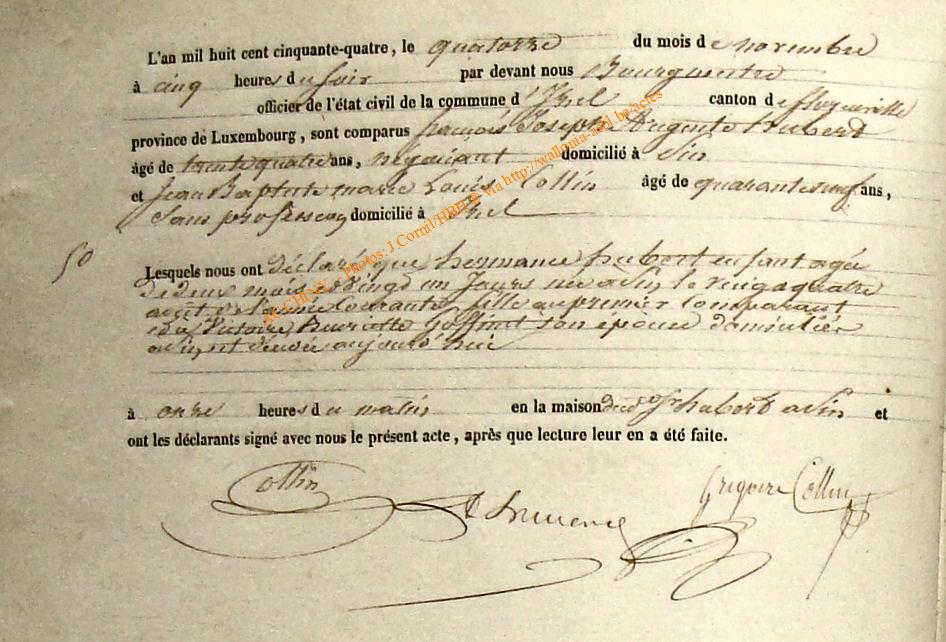 L'an mil huit cent cinquante-quatre, le quatorze du mois de novembre
à cinq heures du soir par devant nous Bourgmestre
officier de l'état civil de la commune d'Izel canton de florenville
province de Luxembourg, sont comparus françois Joseph Auguste hubert
âgé de trente quatre ans, négociant domicilié à Pin
et Jean Baptiste marie Louis Collin âgé de quarante neuf ans,
Sans profession domicilié à Izel
50
Lesquels nous ont déclaré que hermance hubert enfant agée
de deux mois et vingt un Jours née a Pin le vingt quatre
aout de l'année Courante, fille au premier Comparant
et a Victoire Goffinet son épouse domiciliés
a Pin, est décédée aujourd'hui
à onze heures du matin en la maison hubert a Pin et
ont les déclarants signé avec nous le présent acte, après que lecture leur en a été faite.
Collin
Grégoire Collin
ARCHIVES - Photos: J.Cornil/HBH @ via http://wallonia-asbl.be/actes